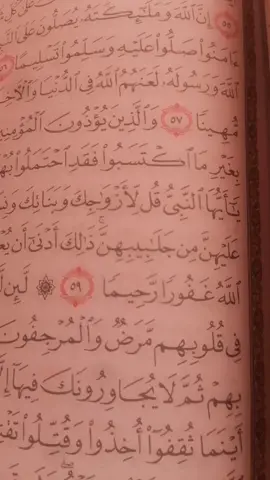 إِنَّ ٱللَّهَ وَمَلَـٰٓئِكَتَهُۥ يُصَلُّونَ عَلَى
ءَامَنُوا۟ صَلُّوا۟ عَلَيْهِ وَسَلِّمُوا۟ تَسْلِيمًا ٥٦
ٱللَّهَ وَرَسُولَهُۥ لَعَنَهُمُ ٱللَّهُ فِى ٱلدُّنْيَا
مُّهِينًا ٥٧ وَٱلَّذِينَ يُؤْذُونَ
بِغَيْرِ مَا ٱكْتَسَبُوا۟ فَقَدِ ٱحْتَمَلُوا۟
يَـٰٓأَيُّهَا ٱلنَّبِىُّ قُل لِّأَزْوَٰجِكَ وَبَنَاتِكَ
عَلَيْهِنَّ مِن جَلَـٰبِيبِهِنَّ ۚ ذَٰلِكَ أَدْنَىٰٓ أَن
ٱللَّهُ غَفُورًا رَّحِيمًا ٥٩ ۞ لَّئِن
فِى قُلُوبِهِم مَّرَضٌ وَٱلْمُرْجِفُونَ
بِهِمْ ثُمَّ لَا يُجَاوِرُونَكَ فِيهَآ
أَيْنَمَا ثُقِفُوٓا۟ أُخِذُوا۟ وَقُتِّلُوا۟